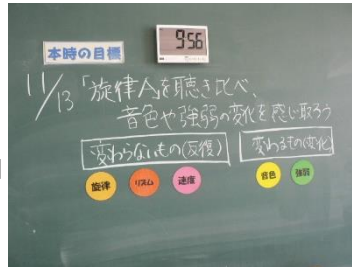 本時の目標
9:56
11/13「旋律Aを聴き比べ、
音色や強弱の変化を感じ取ろう
変わらないもの(反復)
変わるもの(変化)
旋律 リズム 速度
音色 強弱